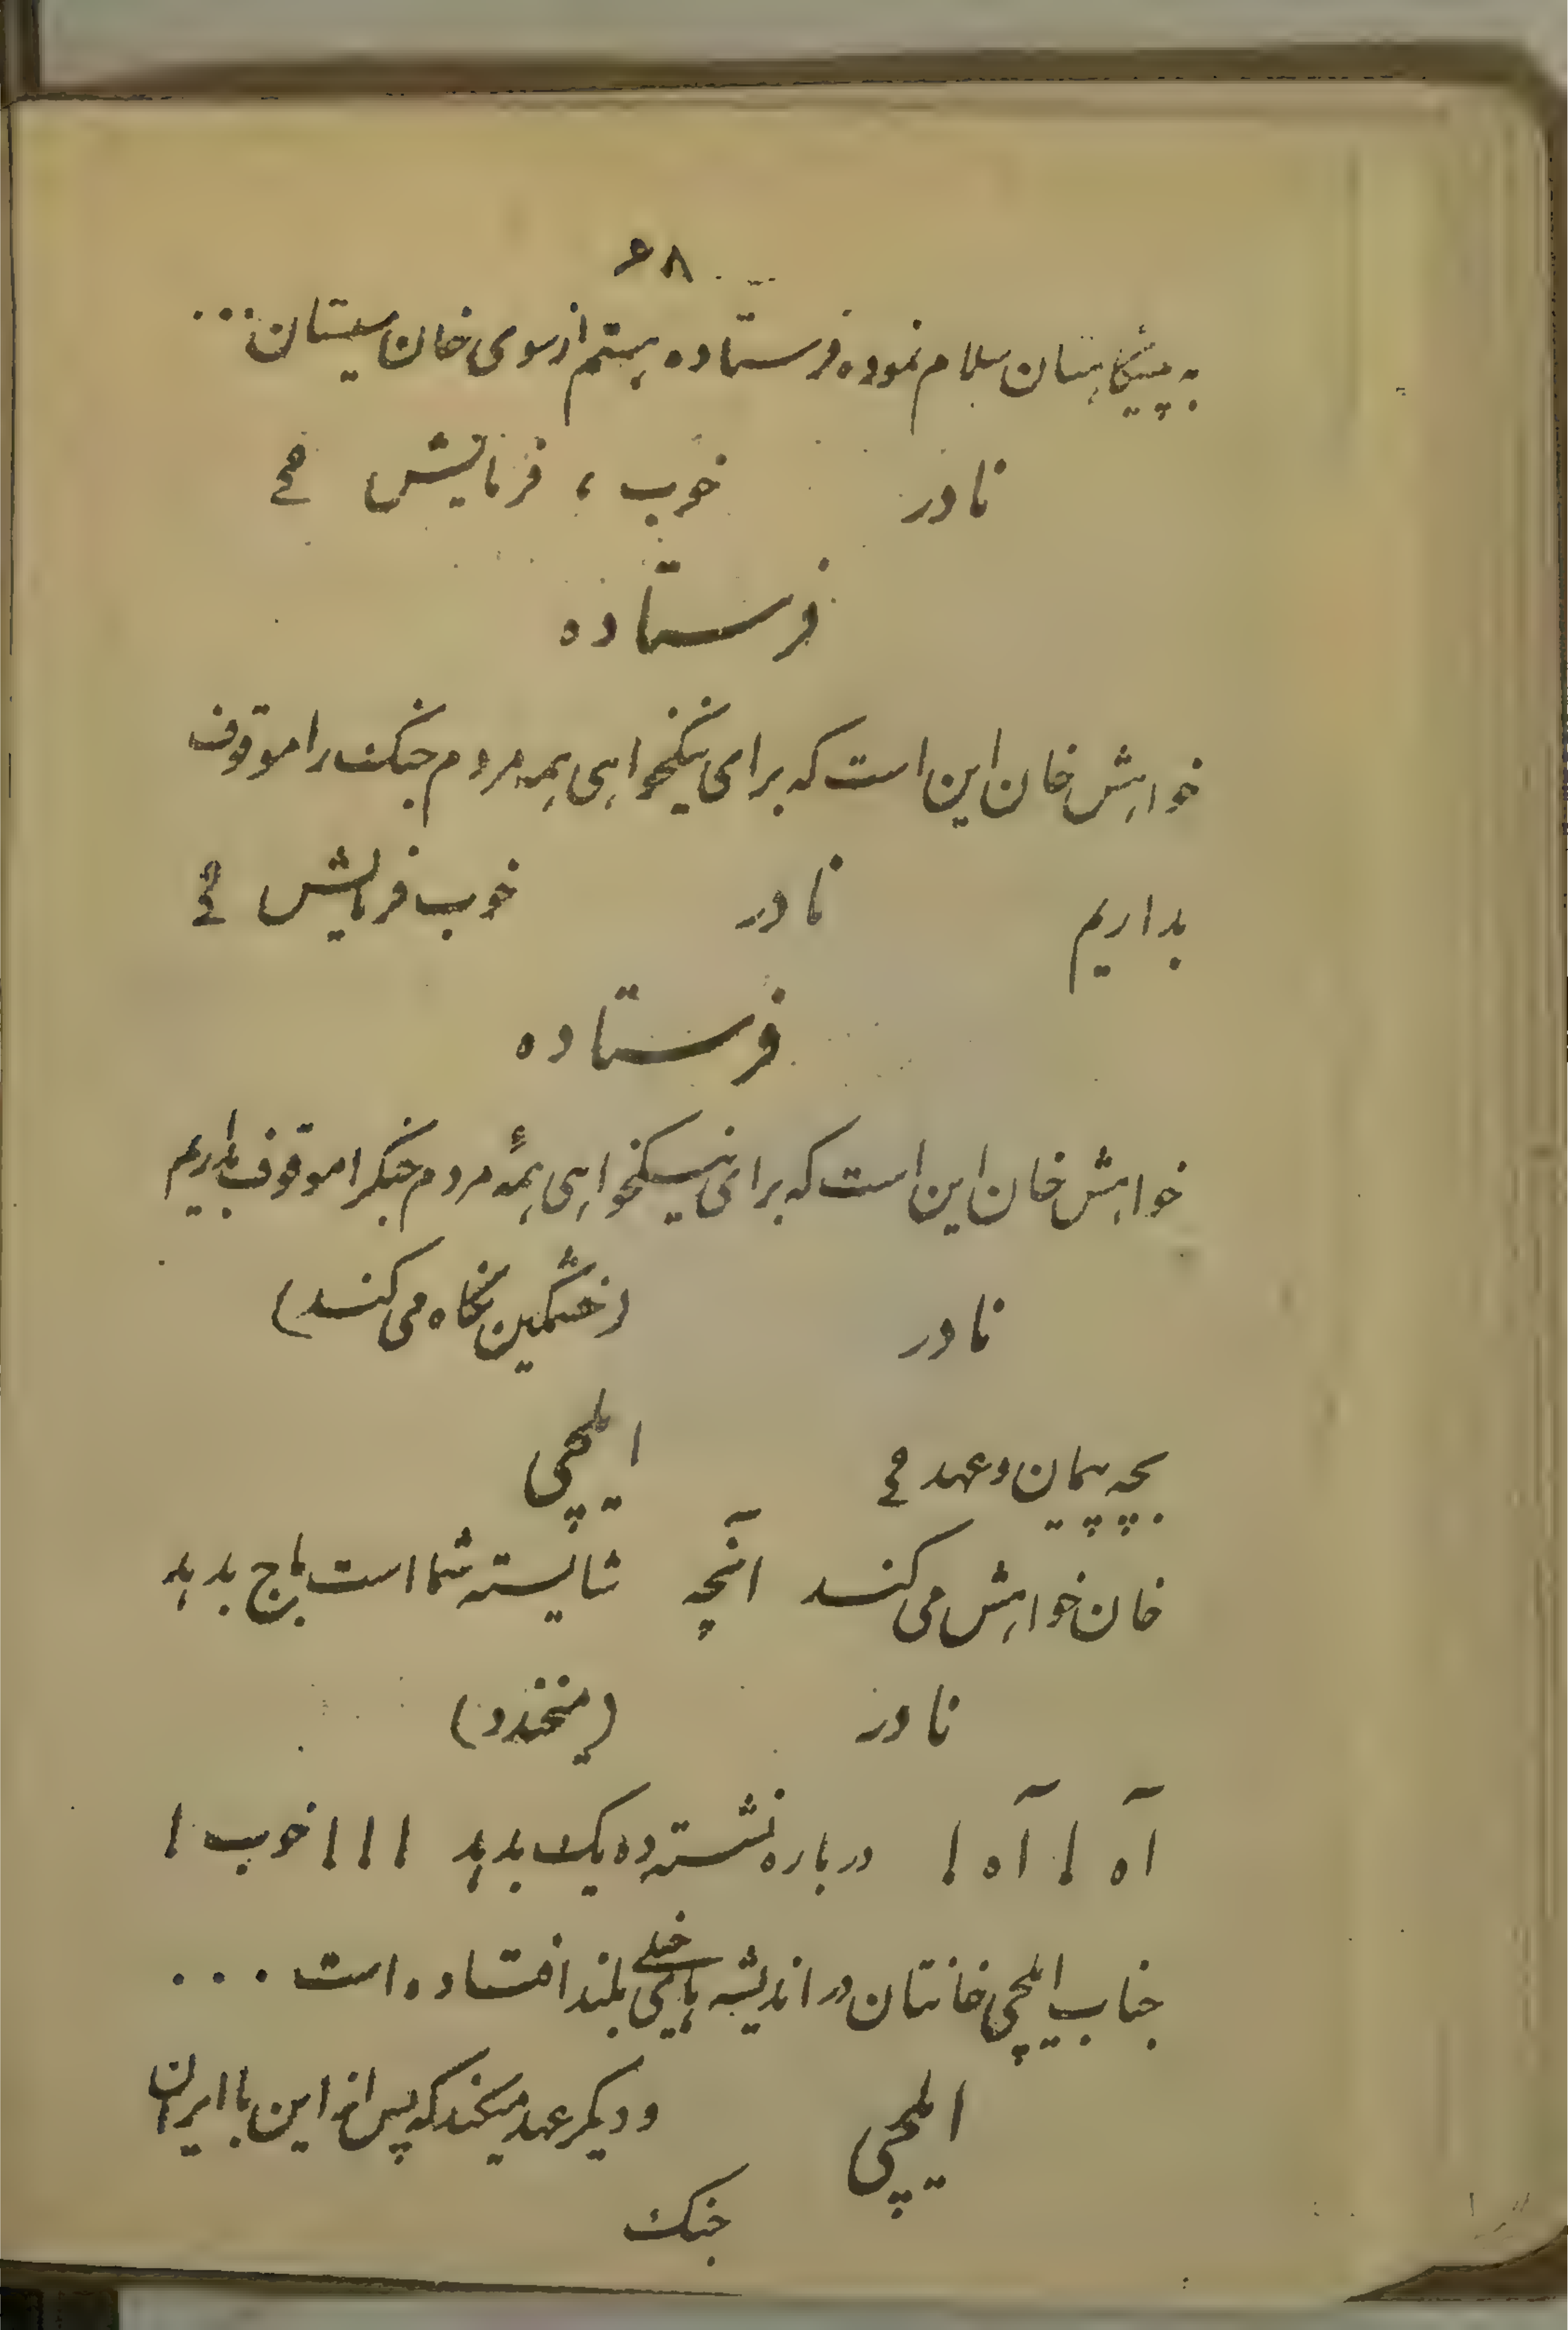 ۶۸
به پیشگاهتان سلام نموده فرستاده هستم از سوی خان سیستان...
نادر خوب ، فرمایش ؟
فرستاده
خواهش خان این است که برای نیکخواهی همه مردم جنگ را موقوف
بداریم نادر خوب فرمایش ؟
فرستاده
خواهش خان این است که برای نیکخواهی همهٔ مردم جنگرا موقوف بداریم
نادر (خشمگین نگاه می کند)
بچه پیمان و عهد ؟ ایلچی
خان خواهش می کند آنچه شایسته شما است باج بدهد
نادر (میخندد)
آه ! آه ! در باره نشسته ده یک بدهد ! ! ! خوب !
جناب ایلچی خانتان در اندیشه هایی خیلی بلند افتاده است . . .
ایلچی و دیگر عهد میکند که پس از این با ایران
جنگ